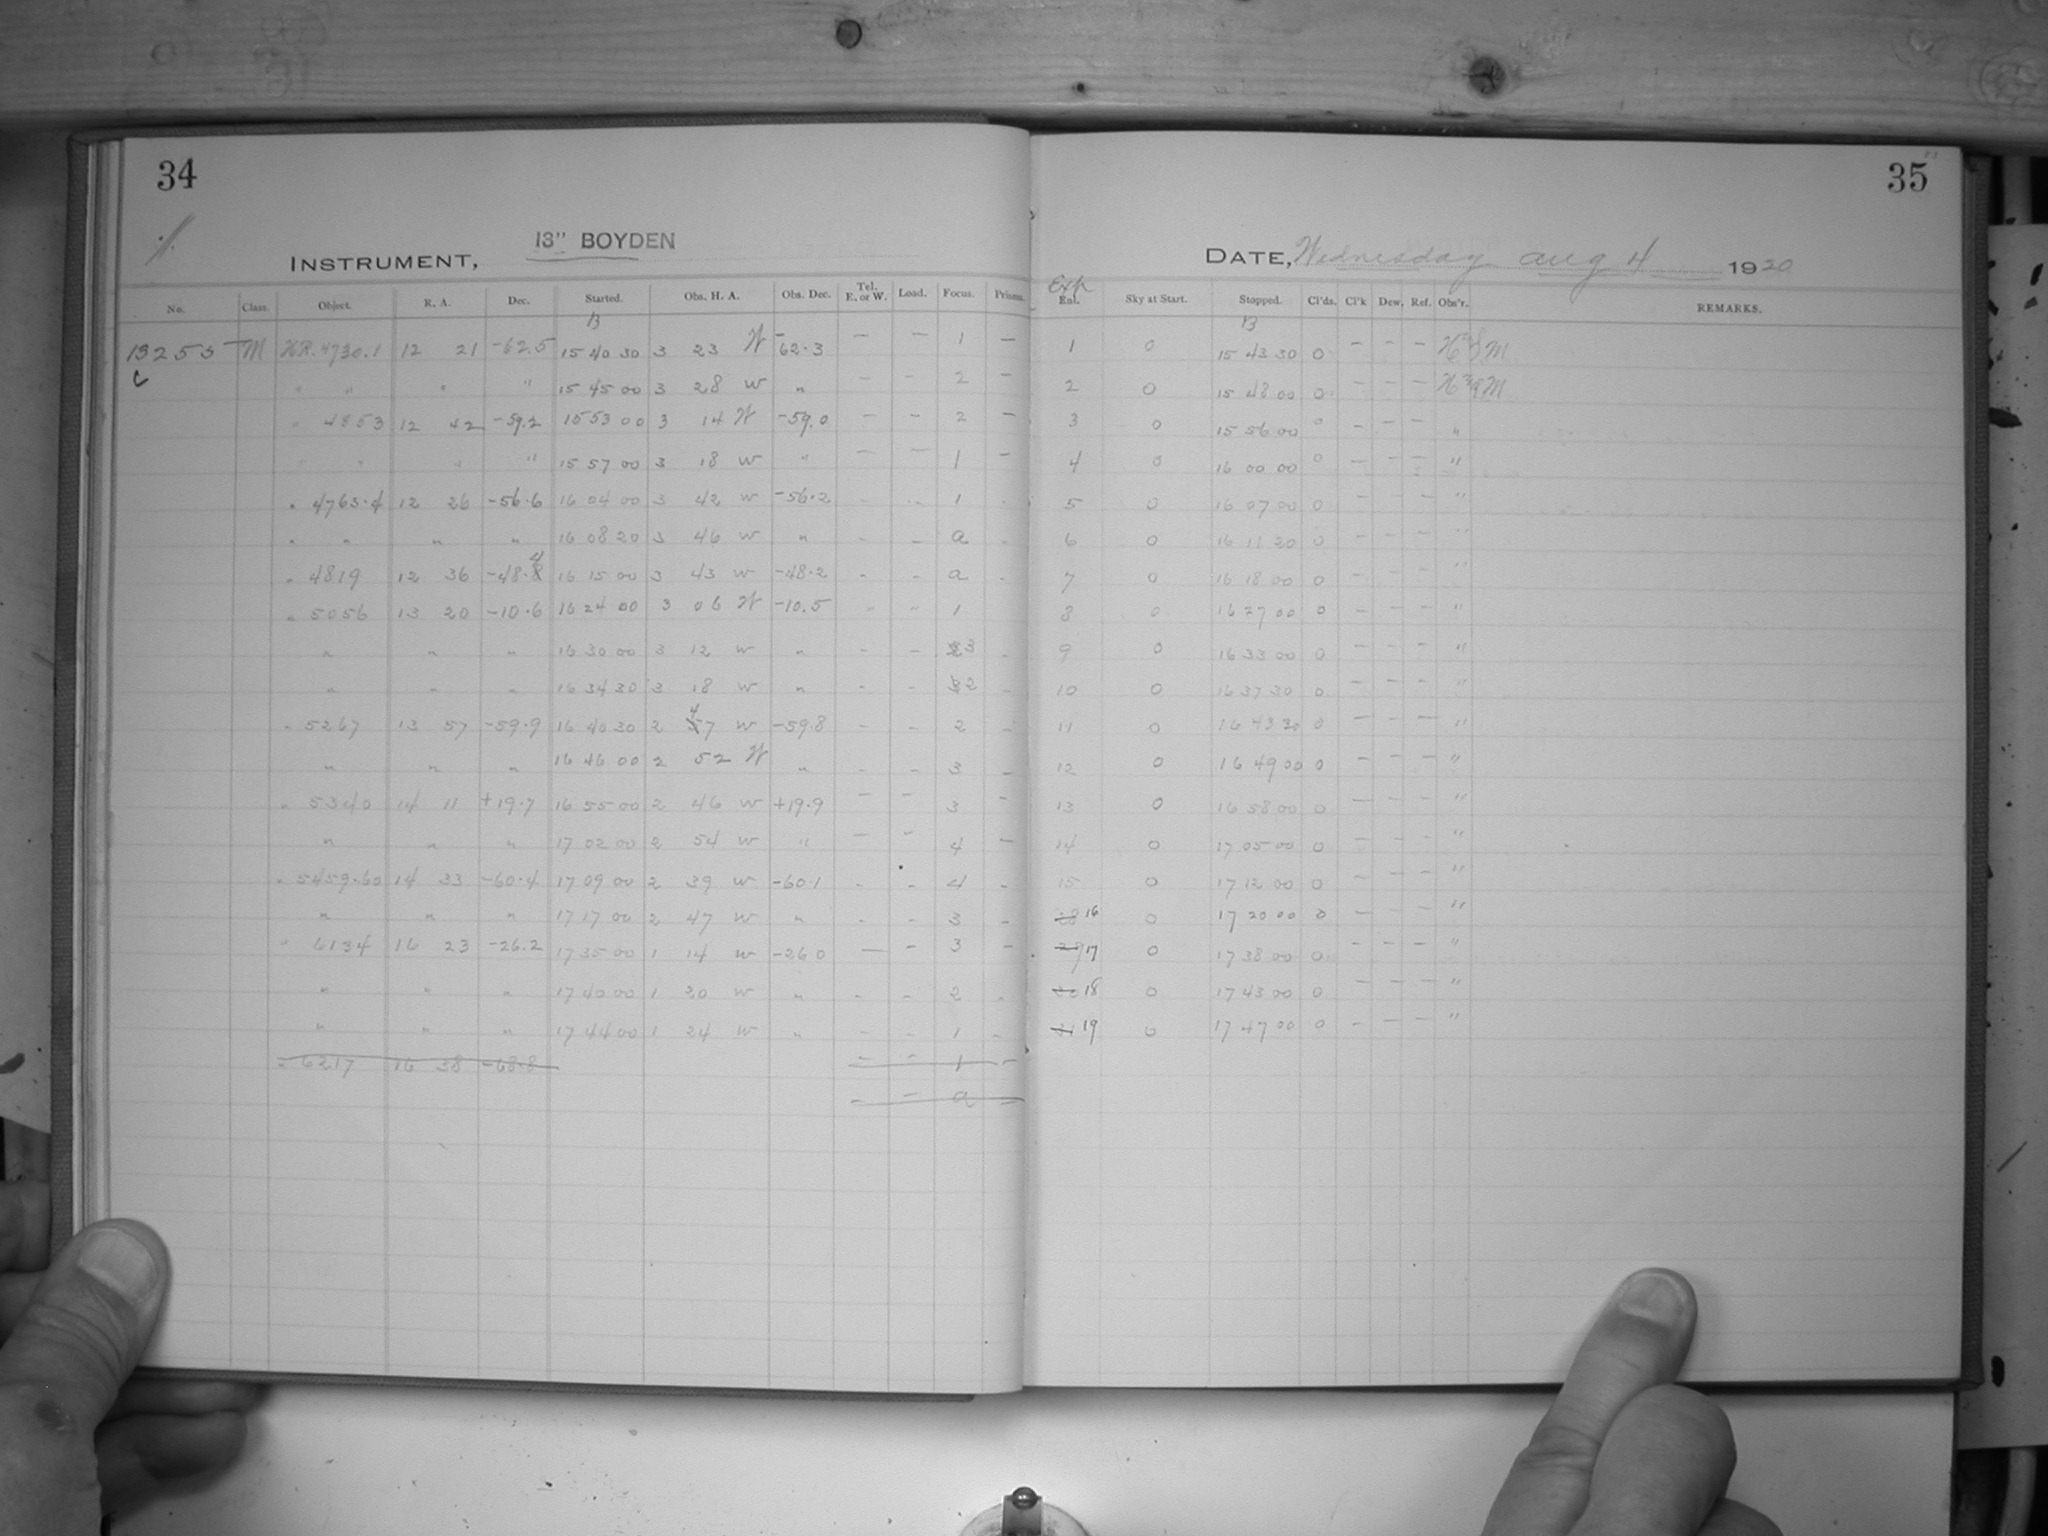 34
INSTRUMENT, 13" BOYDEN
No. Class. Object. R. A. Dec. Started. Obs. H. A. Obs. Dec. Tel. E. or W. Load. Focus. Prisms.
B
13255 M HR. 4730.1 12 21 -62.5 15 40 30 3 23 W -62.3 — — 1 —
C " " " " 15 45 00 3 28 W " — — 2 —
" 4853 12 42 -59.2 15 53 00 3 14 W -59.0 — — 2 —
" " " " 15 57 00 3 18 W " — — 1 —
" 4763.4 12 26 -56.6 16 04 00 3 42 W -56.2 - - 1 -
" " " " 16 08 20 3 46 W " - - a -
" 4819 12 36 -48.4 16 15 00 3 43 W -48.2 - - a -
" 5056 13 20 -10.6 16 24 00 3 06 W -10.5 " " 1
" " " 16 30 00 3 12 W " - - 3 -
" " " 16 34 30 3 18 W " - - 2 -
" 5267 13 57 -59.9 16 40 30 2 47 W -59.8 - - 2 -
" " " 16 46 00 2 52 W " - - 3 -
" 5340 14 11 +19.7 16 55 00 2 46 W +19.9 — — 3 -
" " " 17 02 00 2 54 W " — - 4 —
" 5459.60 14 33 -60.4 17 09 00 2 39 W -60.1 - - 4 -
" " " 17 17 00 2 47 W " - - 3 -
" 6134 16 23 -26.2 17 35 00 1 14 W -26.0 — - 3 -
" " " 17 40 00 1 20 W " - - 2 -
" " " 17 44 00 1 24 W " - - 1 -
" 6217 16 38 -68.8 - - 1 -
- - a -
35
DATE, Wednesday Aug 4 1920
Exp
Enl. Sky at Start. Stopped. Cl'ds. Cl'k Dew. Ref. Obs'r. REMARKS.
B
1 0 15 43 30 0 - - -
2 0 15 48 00 0 - - -
3 0 15 56 00 0 - - - "
4 0 16 00 00 0 - - - "
5 0 16 07 00 0 - - - "
6 0 16 11 20 0 - - - "
7 0 16 18 00 0 - - - "
8 0 16 27 00 0 - - - "
9 0 16 33 00 0 - - - "
10 0 16 37 30 0 - - - "
11 0 16 43 30 0 - - - "
12 0 16 49 00 0 - - - "
13 0 16 58 00 0 - - - "
14 0 17 05 00 0 - - - "
15 0 17 12 00 0 - - - "
16 0 17 20 00 0 - - - "
17 0 17 38 00 0 - - - "
18 0 17 43 00 0 - - - "
19 0 17 47 00 0 - - - "